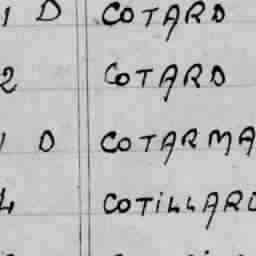 1 D COTARD
2 COTARD
1 0 COTARMA
4 COTiLLARD